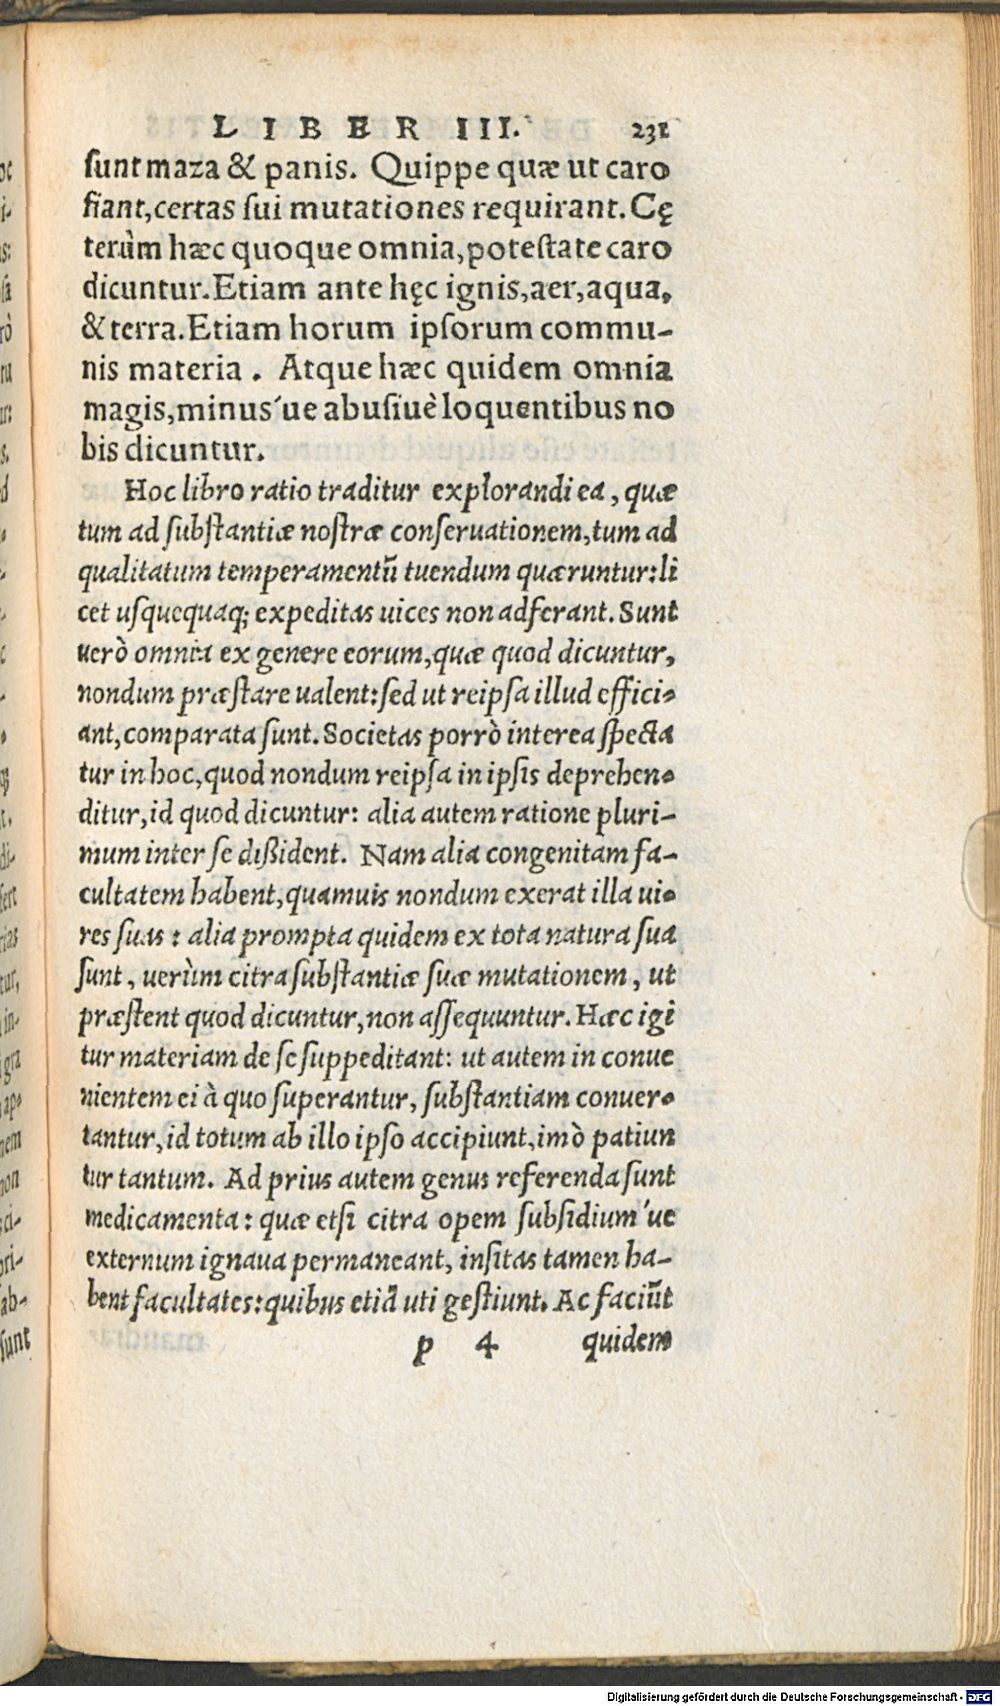 LIBER III. 231
sunt maza & panis. Quippe quæ ut caro
fiant, certas sui mutationes requirant. Cę
terùm hæc quoque omnia, potestate caro
dicuntur. Etiam ante hęc ignis, aer, aqua,
& terra. Etiam horum ipsorum commu-
nis materia. Atque hæc quidem omnia
magis, minus´ue abusiuè loquentibus no
bis dicuntur.
Hoc libro ratio traditur explorandi ea, quæ
tum ad substantiæ nostræ conseruationem, tum ad
qualitatum temperamentū tuendum quæruntur: li
cet usquequaq; expeditas uices non adferant. Sunt
uerò omnia ex genere eorum, quæ quod dicuntur,
nondum præstare ualent: sed ut reipsa illud effici-
ant, comparata sunt. Societas porrò interea specta
tur in hoc, quod nondum reipsa in ipsis deprehen-
ditur, id quod dicuntur: alia autem ratione pluri-
mum inter se dißident. Nam alia congenitam fa-
cultatem habent, quamuis nondum exerat illa ui-
res suas: alia prompta quidem ex tota natura sua
sunt, uerùm citra substantiæ suæ mutationem, ut
præstent quod dicuntur, non assequuntur. Hæc igi
tur materiam de se suppeditant: ut autem in conue
nientem ei à quo superantur, substantiam conuer-
tantur, id totum ab illo ipso accipiunt, imò patiun
tur tantum. Ad prius autem genus referenda sunt
medicamenta: quæ etsi citra opem subsidium´ue
externum ignaua permaneant, insitas tamen ha-
bent facultates: quibus etiā uti gestiunt. Ac faciūt
p 4 quidem
Digitalisierung gefördert durch die Deutsche Forschungsgemeinschaft - DFG